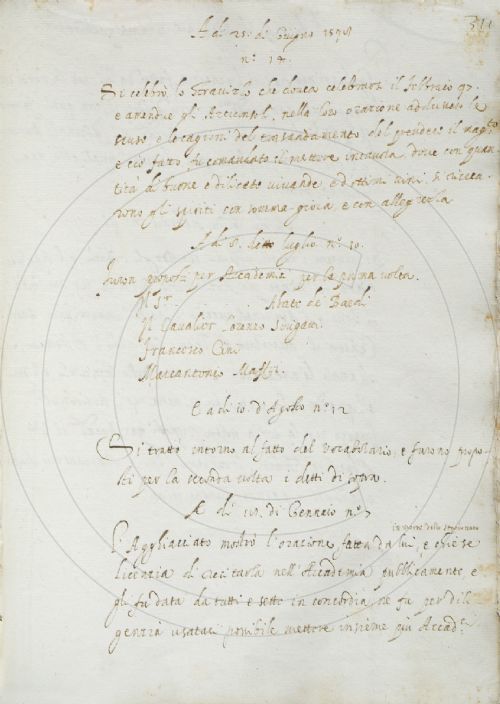 A dì 25. di Giugno 1598
311
n.° 14.
Si celebrò lo Stravizzo che dovea celebrarsi il febbraio 97.
e amendue gli Arciconsoli nella loro orazione adducendo le
scuse, e le cagioni del
e ciò fatto, fu comandato il mettere in tavola, dove con quan-
tità di buone e dilicate vivande, e d'ottimi vini, si ricrea-
rono gli spiriti con somma gioia e con allegrezza
A dì 8. detto luglio n.° 10.
Furon proposti per Accademici per la prima volta.
Abate de Bardi
Il Cavalier Lorenzo
Francesco Cini
Marcantonio
E a dì 10. d'Agosto n.° 12
Si trattò intorno al fatto del vocabolario, e furono propo-
sti per la seconda volta i detti di sopra.
A dì di Gennaio n.° 7
in morte dello
L'Agghiacciato mostrò l'orazione fatta da lui, e chiese
licenzia di recitarla nell'Accademia pubblicamente, e
gli fu data da tutti e sette in concordia, ne fu per dili
genzia usata, possibile mettere insieme più Accad.ci